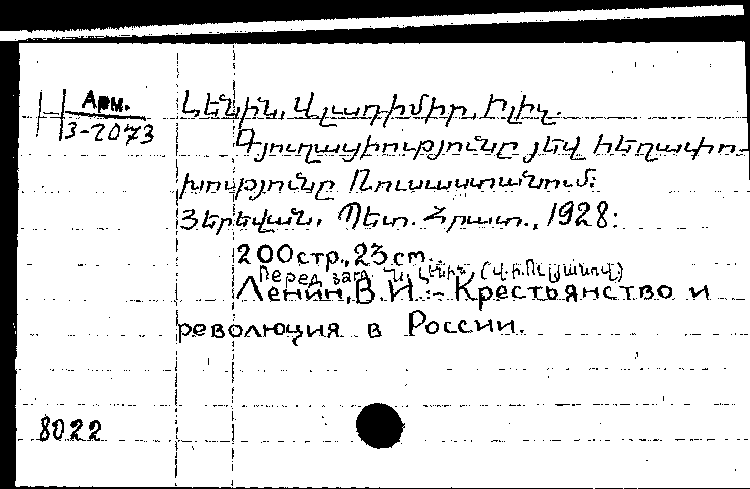 Арм.
3-2073
Լենին, Վլադիմիր, Իլիչ.
Գյուղացիությունը յեվ հեղափո-
խությունը Ռուսաստանում:
Յերեվան, Պետ. Հրատ., 1928:
200стр., 23 см.
Перед загл. Ն. Լենին, (Վ. Ի. Ուլյանով)
Ленин, В.И. :- Крестьянство и
революция в России.
8022